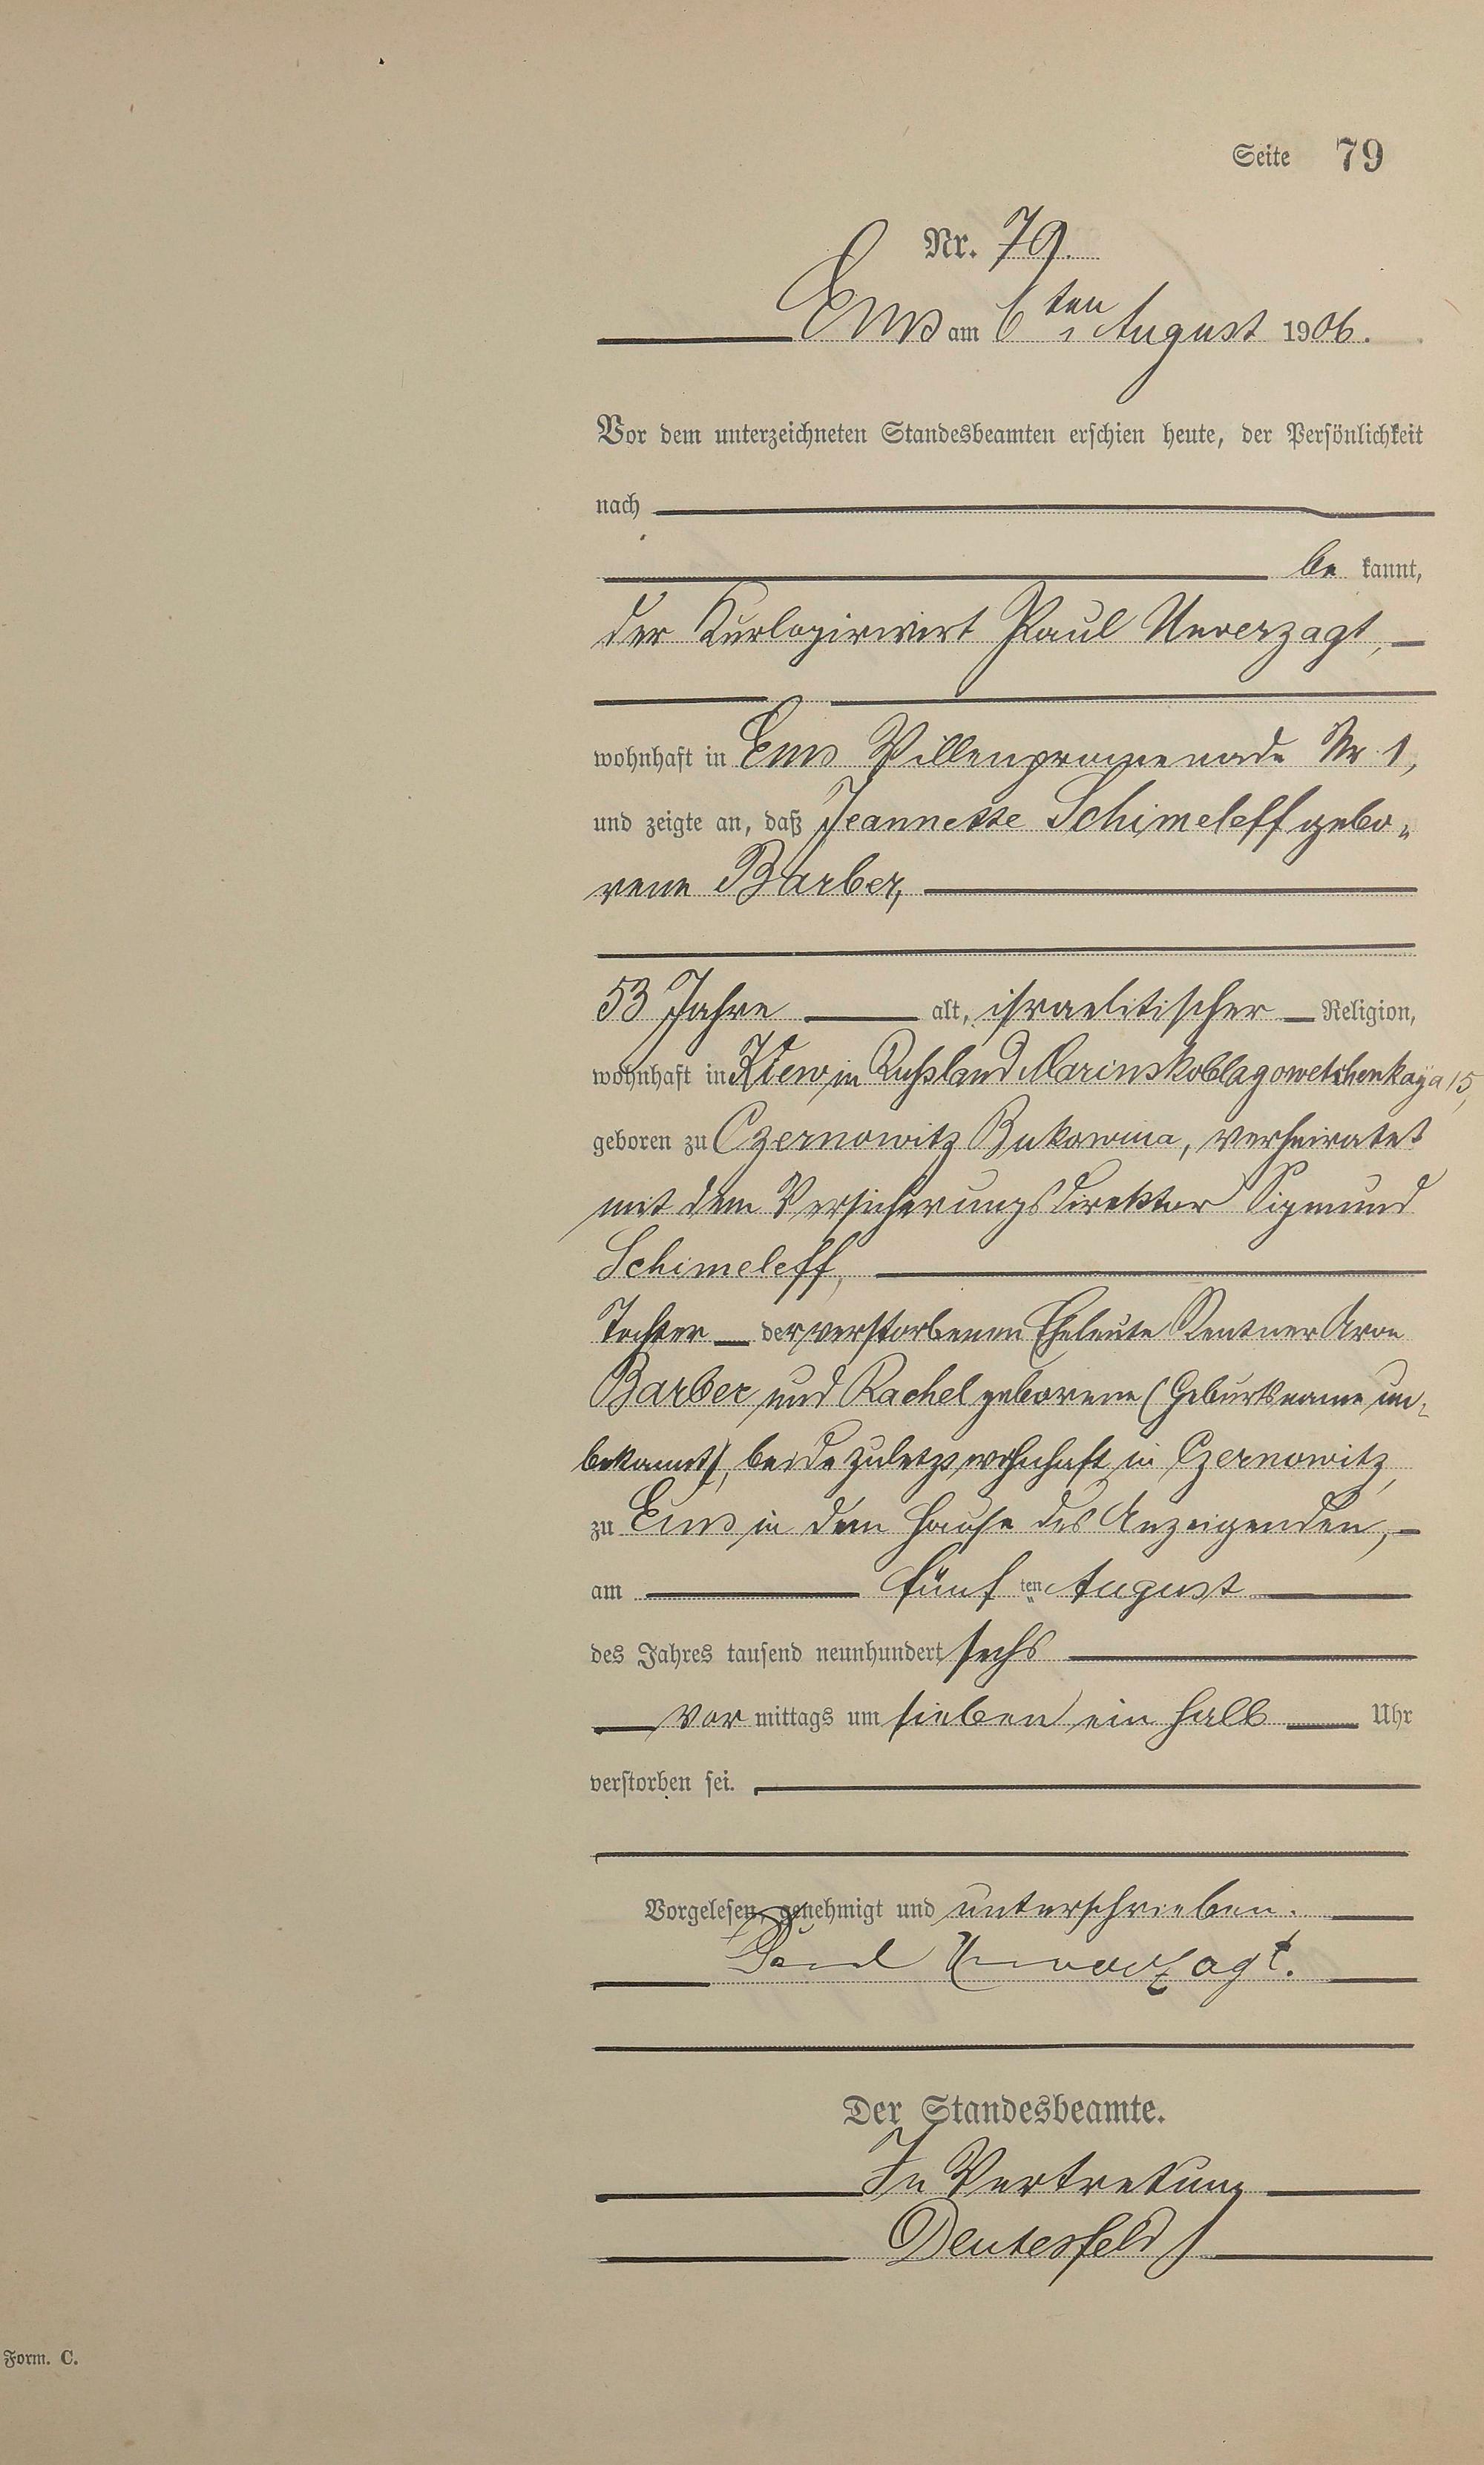 Seite 79
Nr. 79.
Ems am 6ten August 1906.
Vor dem unterzeichneten Standesbeamten erschien heute, der Persönlichkeit
nach
be kannt,
der Kurlogirwirt Paul Unverzagt,
wohnhaft in Ems Villenpromenade Nr. 1,
und zeigte an, daß Jeannette Schimeleff gebo-
rene Barber,
53 Jahre alt, israelitischer Religion,
wohnhaft in Kiew in Rußland Marinskoblagowetschenkaya 15,
geboren zu Czernowitz Bukowina, verheiratet
mit dem Versicherungsdirektor Sigmund
Schimeleff,
Tochter der verstorbenen Eheleute Rentner Aron
Barber und Rachel geborene (Geburtsname un-
bekannt), beide zuletzt wohnhaft in Czernowitz,
zu Ems in dem Hause des Anzeigenden,
am fünf ten August
des Jahres tausend neunhundert sechs
Vor mittags um sieben ein halb Uhr
verstorben sei.
Vorgelesen, genehmigt und unterschrieben.
Paul Unverzagt.
Der Standesbeamte.
In Vertretung
Deutesfeld
Form. C.